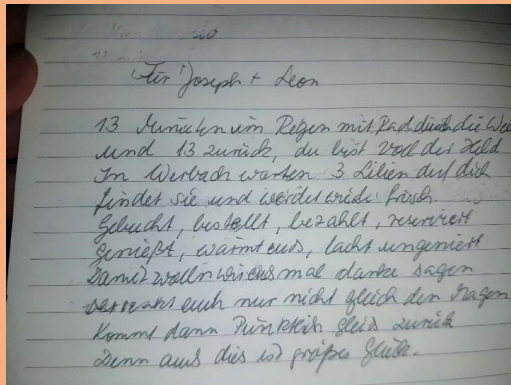 Für Joseph + Leon
13 Minuten im Regen mit Rad durch die
und 13 zurück, du bist voll der Held
In Werbach warten 3 Lilien auf dich
findet sie und werdet wieder frisch.
Gebucht, bestellt, bezahlt, reserviert
genießt, wärmt euch, lacht ungeniert
Damit wolln wir euch mal danke sagen
verrenkt euch nur nicht gleich den Magen
Kommt dann Pünktlich zurück
Denn auch dies ist großes Glück.